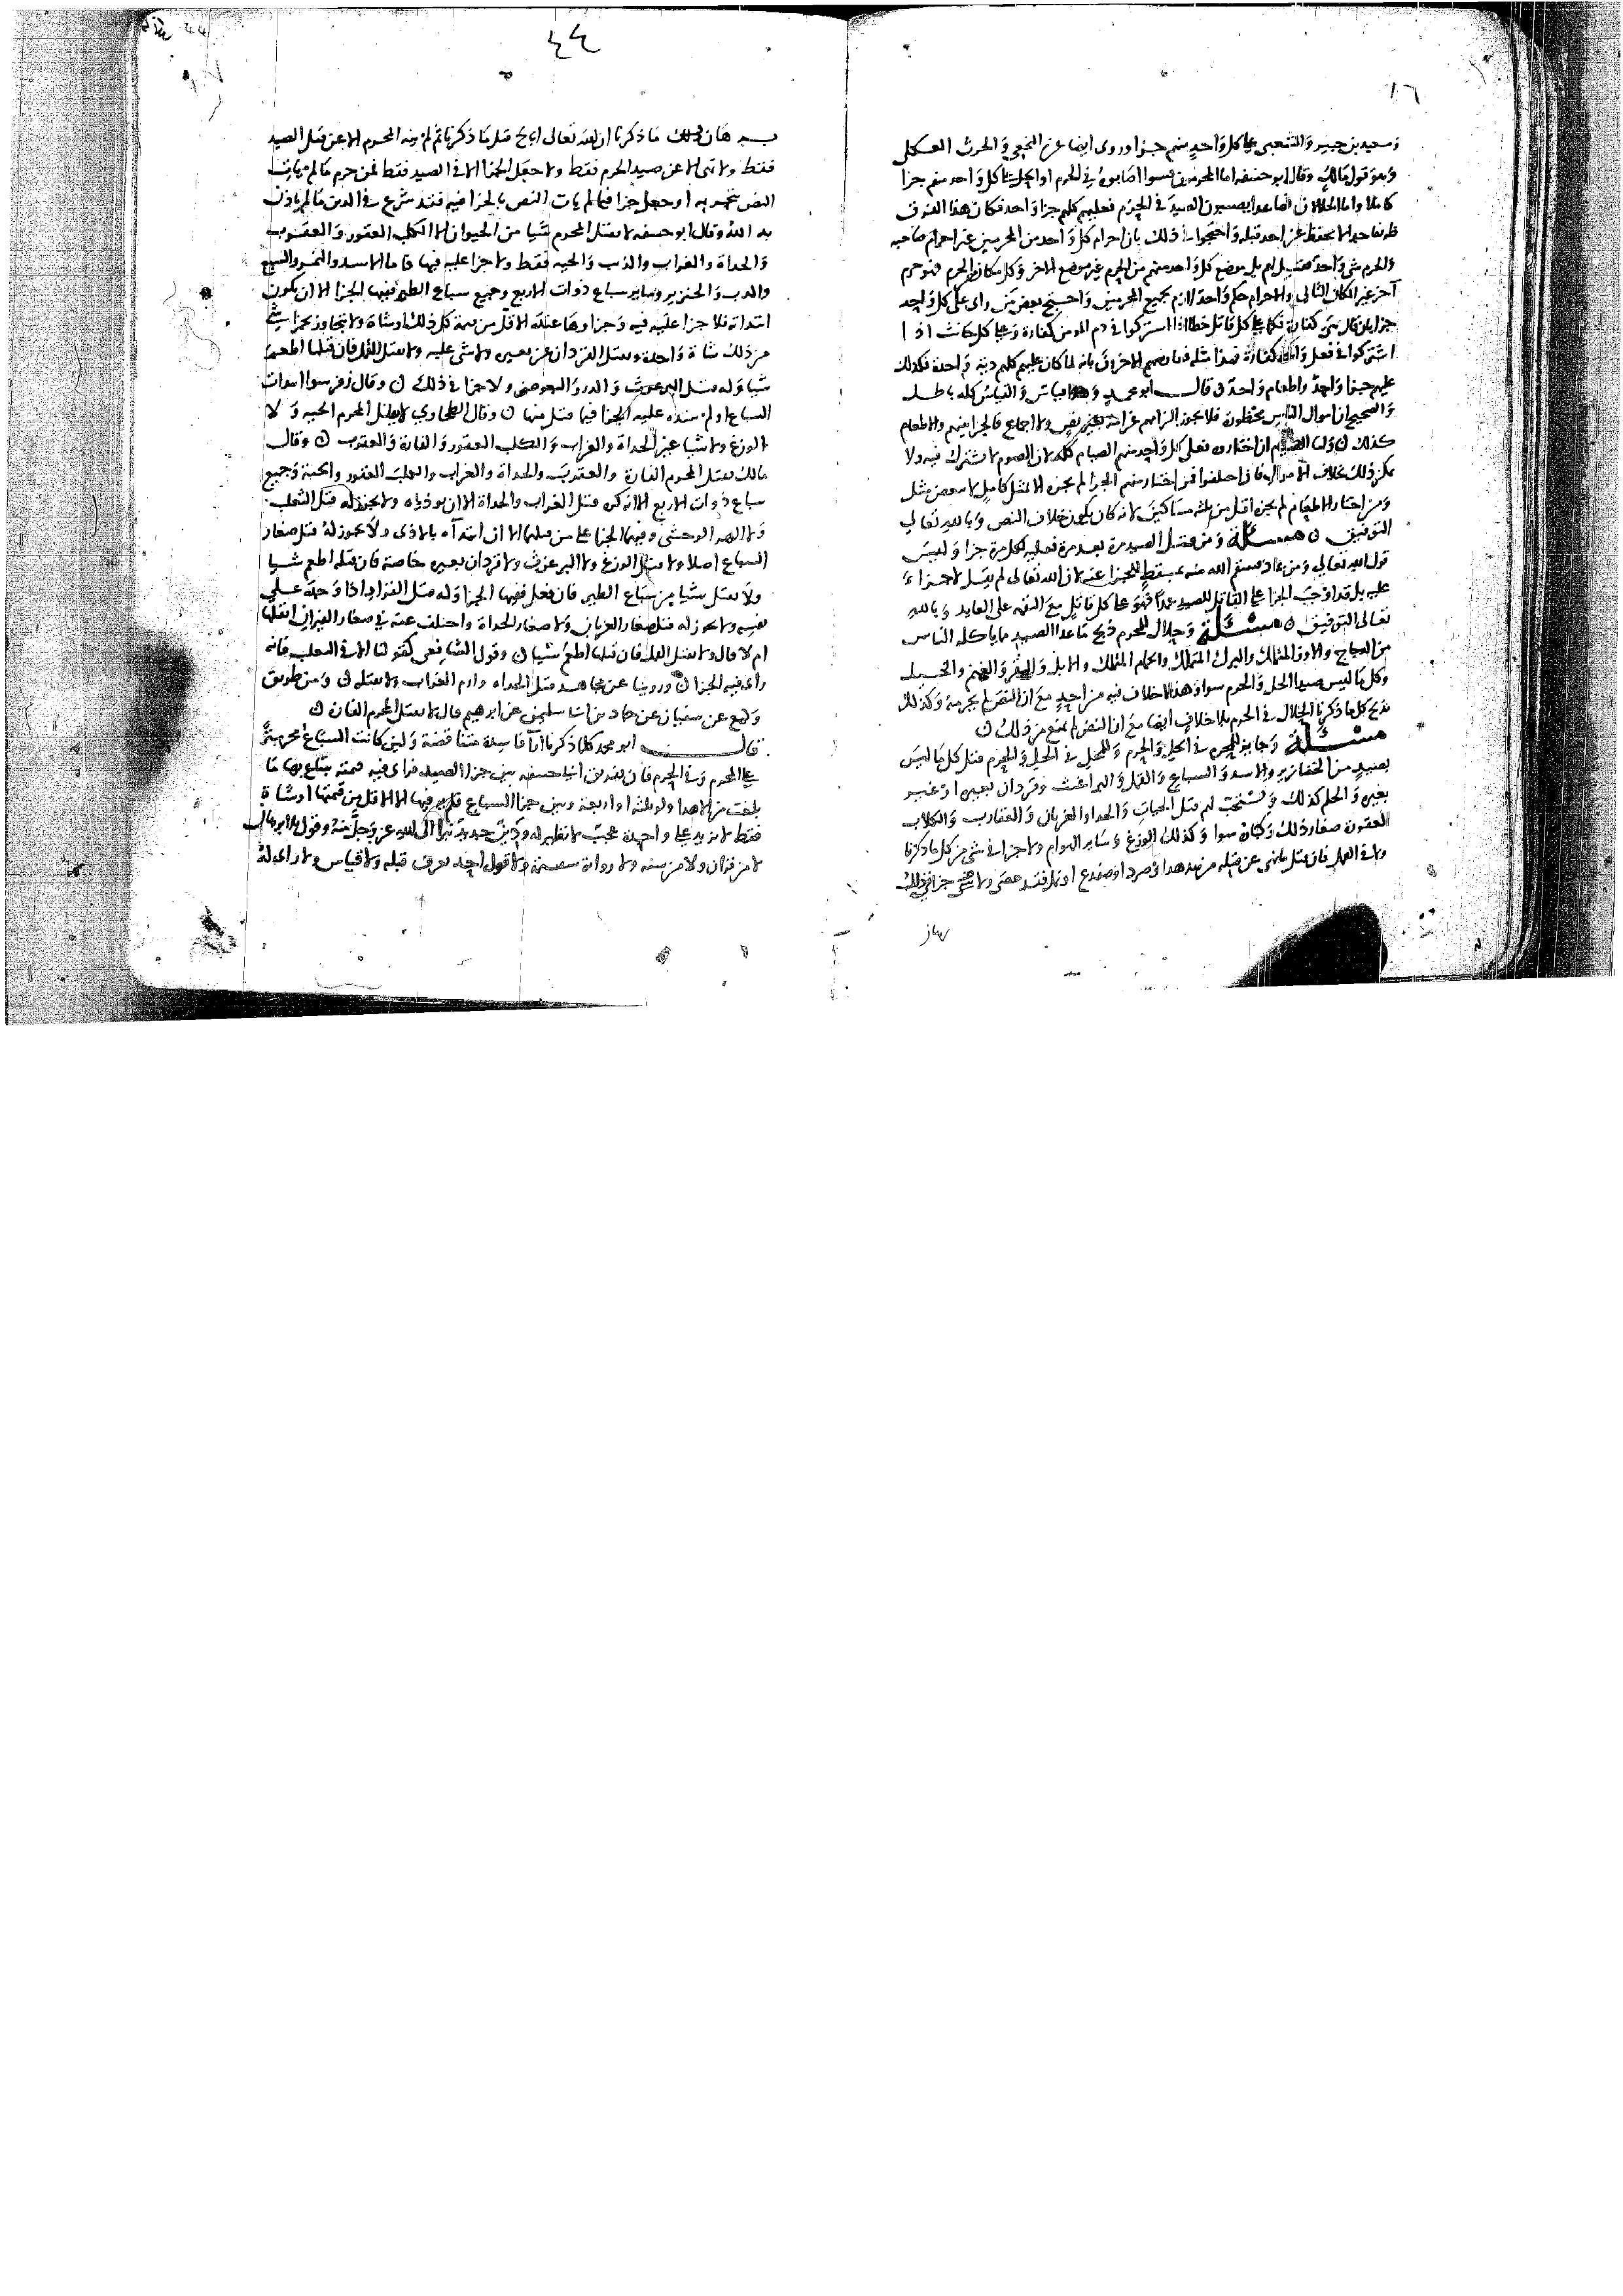 ١٦
وسعيد بن جبير والشعبي على كل واحد منهم جزا وروى ايضا عن النخعي والحرث العكلي
وهو قول مالك وقال ابو حنيفه اما المحرمون فسوا اصابوه في الحرم او الحل على كل واحد منهم جزا
كاملا واما المحلان فصاعدا يصيبون الصيد في الحرم فعليهم كلهم جزا واحد فكان هذا الفرق
طريفا جدا لا يحفظ عن احد قبله واحتجوا ذلك بان احرام كل واحد من المحرمين غير احرام صاحبه
والحرم شي واحد فقيل لهم بل موضع كل واحد منهم من الحرم غير موضع الاخر وكل مكان من الحرم فهو حرم
آخر غير المكان الثاني والاحرام حكم واحد لازم لجميع المحرمين واحتج بعض من راى على كل واحد
جزا بان قال هي كفارة فكما على كل قاتل خطا اذا اشتركوا في دم المومن كفارة وعلى كل حانث اذا
اشتركوا في فعل واحد كفارة فهذا مثله فعارضهم الاخرون بانه لما كان عليهم كلهم دية واحدة فكذلك
عليهم جزا واحد واطعام واحد ن قال ابو محمد وهذا قياس والقياس كله باطل
والصحيح ان اموال الناس محظورة فلا يجوز الزامهم غرامة بغير نص ولا اجماع فالجزا بينهم والاطعام
كذلك ن واما الصيام ان اختاروه فعلى كل واحد منهم الصيام كله لان الصوم لا يشترك فيه ولا
يمكن ذلك بخلاف الاموال فان اختلفوا فمن اختار منهم الجزا لم يجزه الا بمثل كامل لا ببعض مثل
ومن اختار الاطعام لم يجزه اقل من ثلثه مساكين لانه كان يكون خلاف النص وبالله تعالى
التوفيق ن مسئلة ومن قتل الصيد مرة بعد مرة فعليه لكل مرة جزا وليس
قول الله تعالى ومن عاد فينتقم الله منه بمسقط للجزا عنه لان الله تعالى لم يقل لا جزاء
عليه بل قد اوجب الجزا على القاتل للصيد عمدا فهو على كل قاتل مع النقمه على العايد وبالله
تعالى التوفيق ن مسئلة وحلال للمحرم ذبح ما عدا الصيد مما ياكله الناس
من الدجاج والاوز المتملك والبرك المتملك والحمام المتملك والابل والبقر والغنم والخيل
وكل ما ليس صيدا الحل والحرم سوا وهذا لا خلاف فيه من احد مع ان النص لم يحرمه وكذلك
يذبح كل ما ذكرنا الحلال في الحرم بلا خلاف ايضا مع ان النص لم يمنع من ذلك ن
مسئلة وجايز للمحرم في الحل والحرم وللمحل في الحل والحرم قتل كل ما ليس
بصيد من الخنازير والاسد والسباع والقمل والبراغيث وقردان بعيره او غير
بعيره والحلم كذلك ونستحب لهم قتل الحيات والحدا والغربان والعقارب والكلاب
العقورة صغار ذلك وكباره سوا وكذلك الوزغ وساير الهوام ولا جزا في شي من كل ما ذكرنا
ولا في القمل فان قتل ما نهي عن قتله من هدهد او صرد او ضفدع او نمل فقد عصى ولا جزا في ذلك
٤٤
برهان ذلك ما ذكرنا ان الله تعالى اباح قتل ما ذكرنا ثم لم ينه المحرم الا عن قتل الصيد
فقط ولا نهى الا عن صيد الحرم فقط ولا جعل الجزا الا في الصيد فقط فمن حرم ما لم يات
النص بتحريمه او جعل جزا فيما لم يات النص بالجزا فيه فقد شرع في الدين ما لم ياذن
به الله وقال ابو حنيفه لا يقتل المحرم شيا من الحيوان الا الكلب العقور والعقرب
والحداة والغراب والذئب والحيه فقط ولا جزا عليه فيها فاما الاسد والنمر والسبع
والدب والخنزير وساير سباع ذوات الاربع وجميع سباع الطير ففيها الجزا الا ان تكون
ابتداته فلا جزا عليه فيه وجزاوها عنده الاقل من قيمة كل ذلك او شاة ولا يتجاوز بجزا شي
من ذلك شاة واحدة ويقتل القردان عن بعيره ولا شي عليه ولا يقتل القمل فان قتلها اطعم
شيا وله قتل البرغوث والذر والبعوض ولا جزا في ذلك ن وقال زفر سوا ابتدات
السباع او لم تبتده عليه الجزا فيما قتل منها ن وقال الطحاوي لا يقتل المحرم الحيه ولا
الوزغ ولا شيا غير الحداة والغراب والكلب العقور والفارة والعقرب ن وقال
مالك يقتل المحرم الفارة والعقرب والحداة والغراب والكلب العقور والحية وجميع
سباع ذوات الاربع الا انه كره قتل الغراب والحداة الا ان يوذياه ولا يجوز له قتل الثعلب
ولا الهر الوحشي وفيهما الجزا على من قتلهما الا ان ابتدآه بالاذى ولا يجوز له قتل صغار
السباع اصلا ولا قتل الوزغ ولا البرغوث ولا قردان بعيره خاصة فان قتله اطعم شيا
ولا يقتل شيا من سباع الطير فان فعل ففيها الجزا وله قتل القراد اذا وجده على
نفسه ولا يجوز له قتل صغار الغربان ولا صغار الحداة واختلف عنه في صغار الفيران ايقتلها
ام لا قال ولا يقتل القمل فان قتلها اطعم شيا ن وقول الشافعي كقولنا الا في الثعلب فانه
راى فيه الجزا ن وروينا عن مجاهد قتل الحداه وارم الغراب ولا تقتله ن ومن طريق
وكيع عن سفيان عن حماد بن ابي سليمن عن ابرهيم قال لا يقتل المحرم الفارة ن
قال ابو محمد كل ما ذكرنا اراء فاسدة متناقضة ولين كانت السباع محرمة
على المحرم وفي الحرم فان تفريق ابي حنيفه بين جزا الصيد فراى فيه قيمته يبتاع بها ما
بلغت من الاهدا ولو ثلثة او اربعة وبين جزا السباع فلم ير فيها الا الاقل من قيمتها او شاة
فقط لا يزيد على واحدة عجب لا نظير له ودين جديد نبرا الى الله عز وجل منه وقول بلا برهان
لا من قران ولا من سنه ولا رواية سقيمة ولا قول احد يعرف قبله ولا قياس ولا راى له